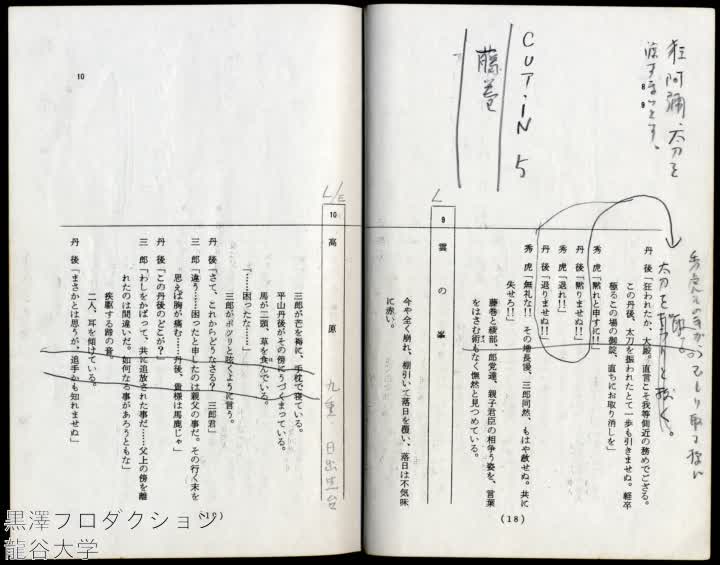 狂阿弥、太刀を
渡すまいとす。
CUT・IN 5
藤巻
8
9
丹後「狂われたか、大殿。直言こそ我等側近の務めでござる。
この丹後、太刀を振われたとて一歩も引きませぬ。軽卒
極るこの場の御諚、直ちにお取り消しを」
太刀を
抜く。
秀虎「黙れと申すに!!」
丹後「黙りませぬ!!」
秀虎「退れ!!」
丹後「退りませぬ!!」
秀虎「無礼な!! その増長後、三郎同然、もはや赦せぬ。共に
失せろ!!」
藤巻と綾部、郎党達、親子君臣の相争う姿を、言葉
をはさむ術もなく憮然と見つめている。
L
9 雲の峯
今や全く崩れ、棚引いて落日を覆い、落日は不気味
に赤い。
(18)
L/E
10 高原
九重 日出生台
三郎が芒を褥に、手枕で寝ている。
平山丹後がその傍にうづくまっている。
馬が二頭、草を食んでいる。
「……困ったな……」
三郎がポツリと呟くように言う。
丹後「さて、これからどうなさる? 三郎君」
三郎「違う……困ったと申したのは親父の事だ。その行く末を
思えば胸が痛む……丹後、貴様は馬鹿じゃ」
丹後「この丹後のどこが?」
三郎「わしをかばって、共に追放された事だ……父上の傍を離
れたのは間違いだ。如何なる事があろうともな」
疾駆する蹄の音。
二人、耳を傾けている。
丹後「まさかとは思うが、追手かも知れませぬ」
10
(19)
黒澤プロダクション
龍谷大学